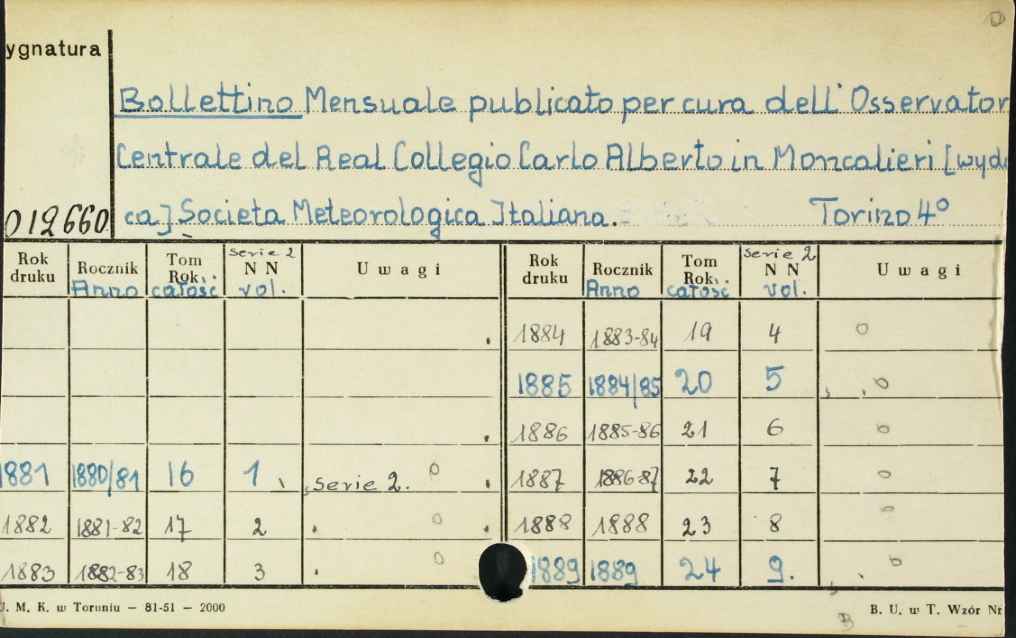 ygnatura
Bollettino Mensuale publicato per cura dell' Osservator
Centrale del Real Collegio Carlo Alberto in Moncalieri [wyda
012660 ca] Societa Meteorologica Italiana. Torino 4º
Rok druku Rocznik Anno Tom Rok. całość serie 2 N N vol. Uwagi Rok druku Rocznik Anno Tom Rok. całość serie 2 N N vol. Uwagi
1884 1883-84 19 4 o
1885 1884/85 20 5 o
1886 1885-86 21 6 o
1881 1880/81 16 1 serie 2. o 1887 1886-87 22 7 o
1882 1881-82 17 2 o 1888 1888 23 8 o
1883 1882-83 18 3 o 1889 1889 24 9. o
J. M. K. w Toruniu — 81-51 — 2000 B. U. w T. Wzór Nr